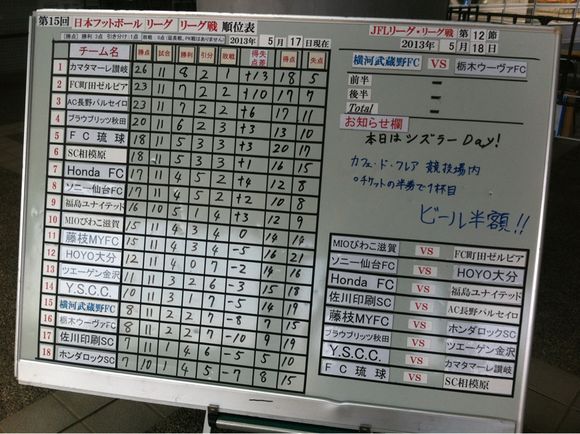 第15回 日本フットボール リーグ リーグ戦 順位表
2013年 5月 17日現在
チーム名 勝点 試合 勝利 引分 敗戦 得失点差 得点 失点
1 カマタマーレ讃岐 26 11 8 2 1 +13 18 5
2 FC町田ゼルビア 23 11 7 2 2 +10 17 7
3 AC長野パルセイロ 23 11 7 2 2 +6 17 11
4 ブラウブリッツ秋田 20 11 6 2 3 +7 17 10
5 FC琉球 18 11 5 3 3 +3 20 17
6 SC相模原 18 11 5 3 3 +1 16 15
7 Honda FC 17 11 5 2 4 +4 12 8
8 ソニー仙台FC 17 11 4 5 2 +2 10 8
9 福島ユナイテッド 16 10 5 1 4 +3 12 9
10 MIOびわこ滋賀 15 11 4 3 4 0 14 14
11 藤枝MYFC 15 11 4 3 4 -5 16 21
12 HOYO大分 12 11 4 0 7 -2 14 16
13 ツエーゲン金沢
14 Y.S.C.C.
15 横河武蔵野FC
16 栃木ウーヴァFC
17 佐川印刷SC
18 ホンダロックSC 7 10 1 4 5 -7 8 15
JFLリーグ・リーグ戦 第12節
2013年 5月 18日
横河武蔵野FC VS 栃木ウーヴァFC
前半 -
後半 -
Total -
お知らせ欄
本日はシズラーDay!
カフェ・ド・クレア 競技場内
○チケットの半券で1杯目
ビール半額!!
MIOびわこ滋賀 VS FC町田ゼルビア
ソニー仙台FC VS HOYO大分
Honda FC VS 福島ユナイテッド
佐川印刷SC VS AC長野パルセイロ
藤枝MYFC VS ホンダロックSC
ブラウブリッツ秋田 VS ツエーゲン金沢
Y.S.C.C. VS カマタマーレ讃岐
FC琉球 VS SC相模原